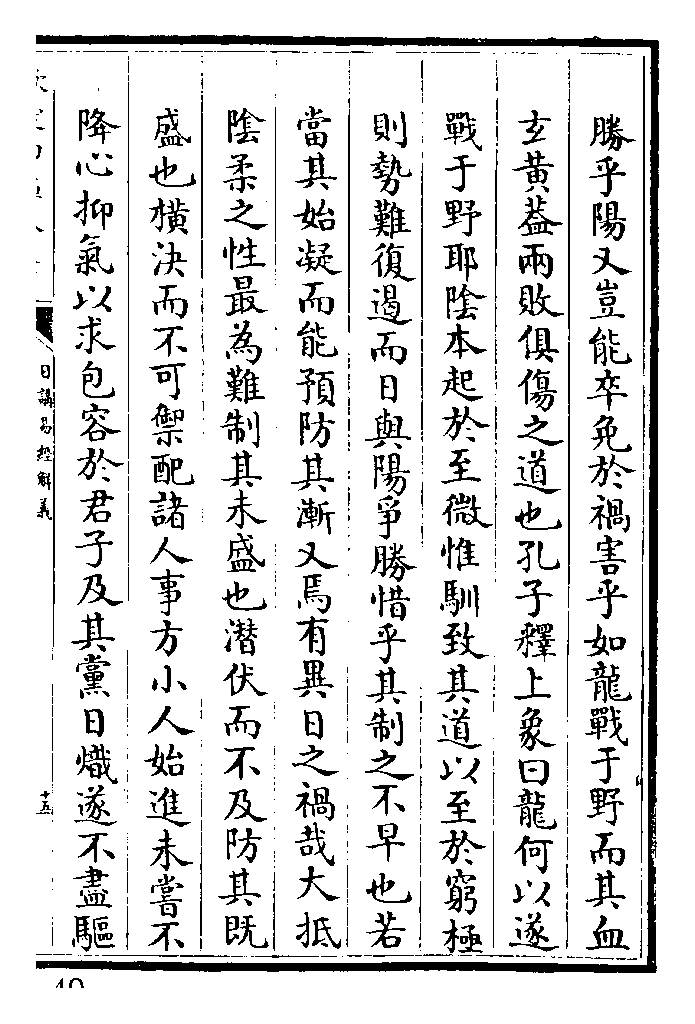 勝乎陽又豈能卒免於禍害乎如龍戰于野而其血
玄黃葢兩敗俱傷之道也孔子釋上象曰龍何以遂
戰于野耶陰本起於至微惟馴致其道以至於窮極
則勢難復遏而日與陽爭勝惜乎其制之不早也若
當其始凝而能預防其漸又焉有異日之禍哉大抵
陰柔之性最為難制其未盛也潜伏而不及防其既
盛也橫決而不可禦配諸人事方小人始進未嘗不
降心抑氣以求包容於君子及其黨日熾遂不盡驅
日講易經解義
十五